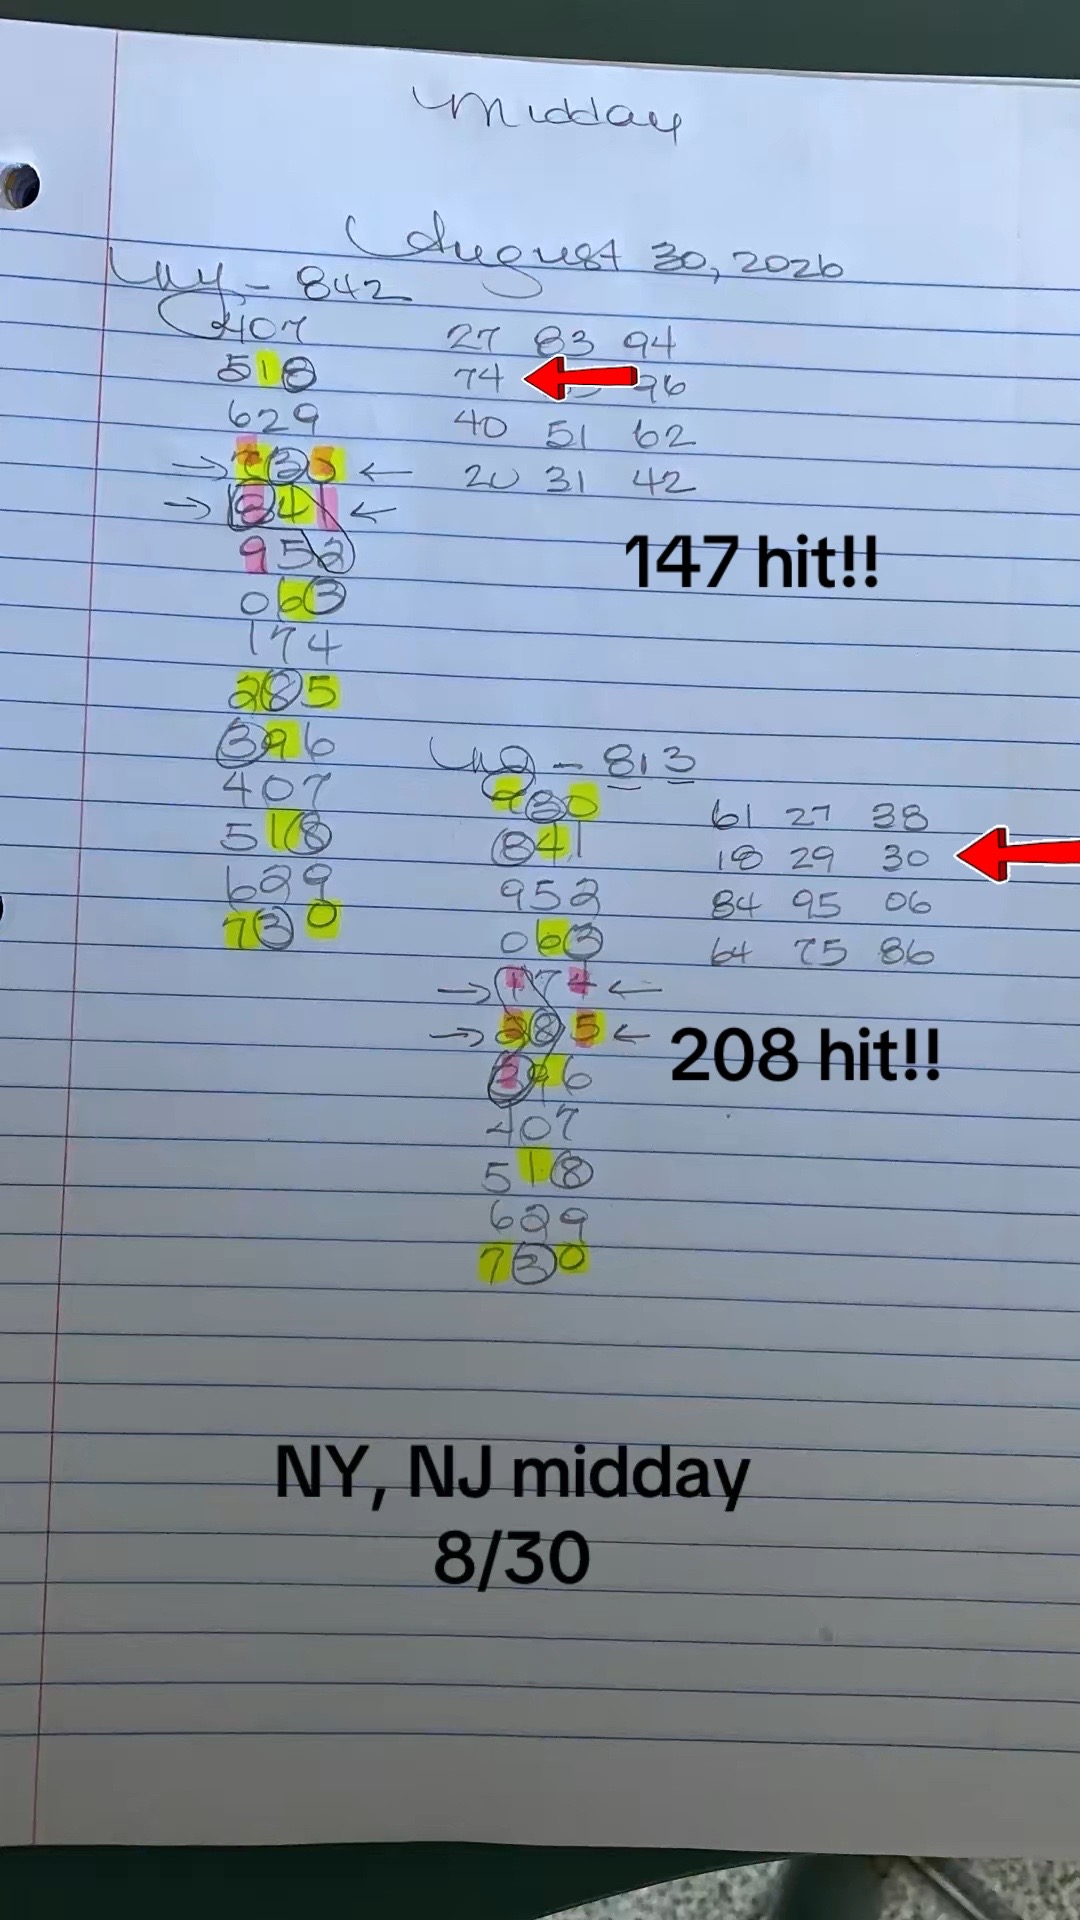 Midday
August 30, 2026
NY - 842
407 27 83 94
518 74 96
629 40 51 62
730 20 31 42
841
952
063
174
285
396
407
518
629
730
147 hit!!
NJ - 813
730 61 27 38
841 18 29 30
952 84 95 06
063 64 75 86
174
285
396
407
518
629
730
208 hit!!
NY, NJ midday
8/30